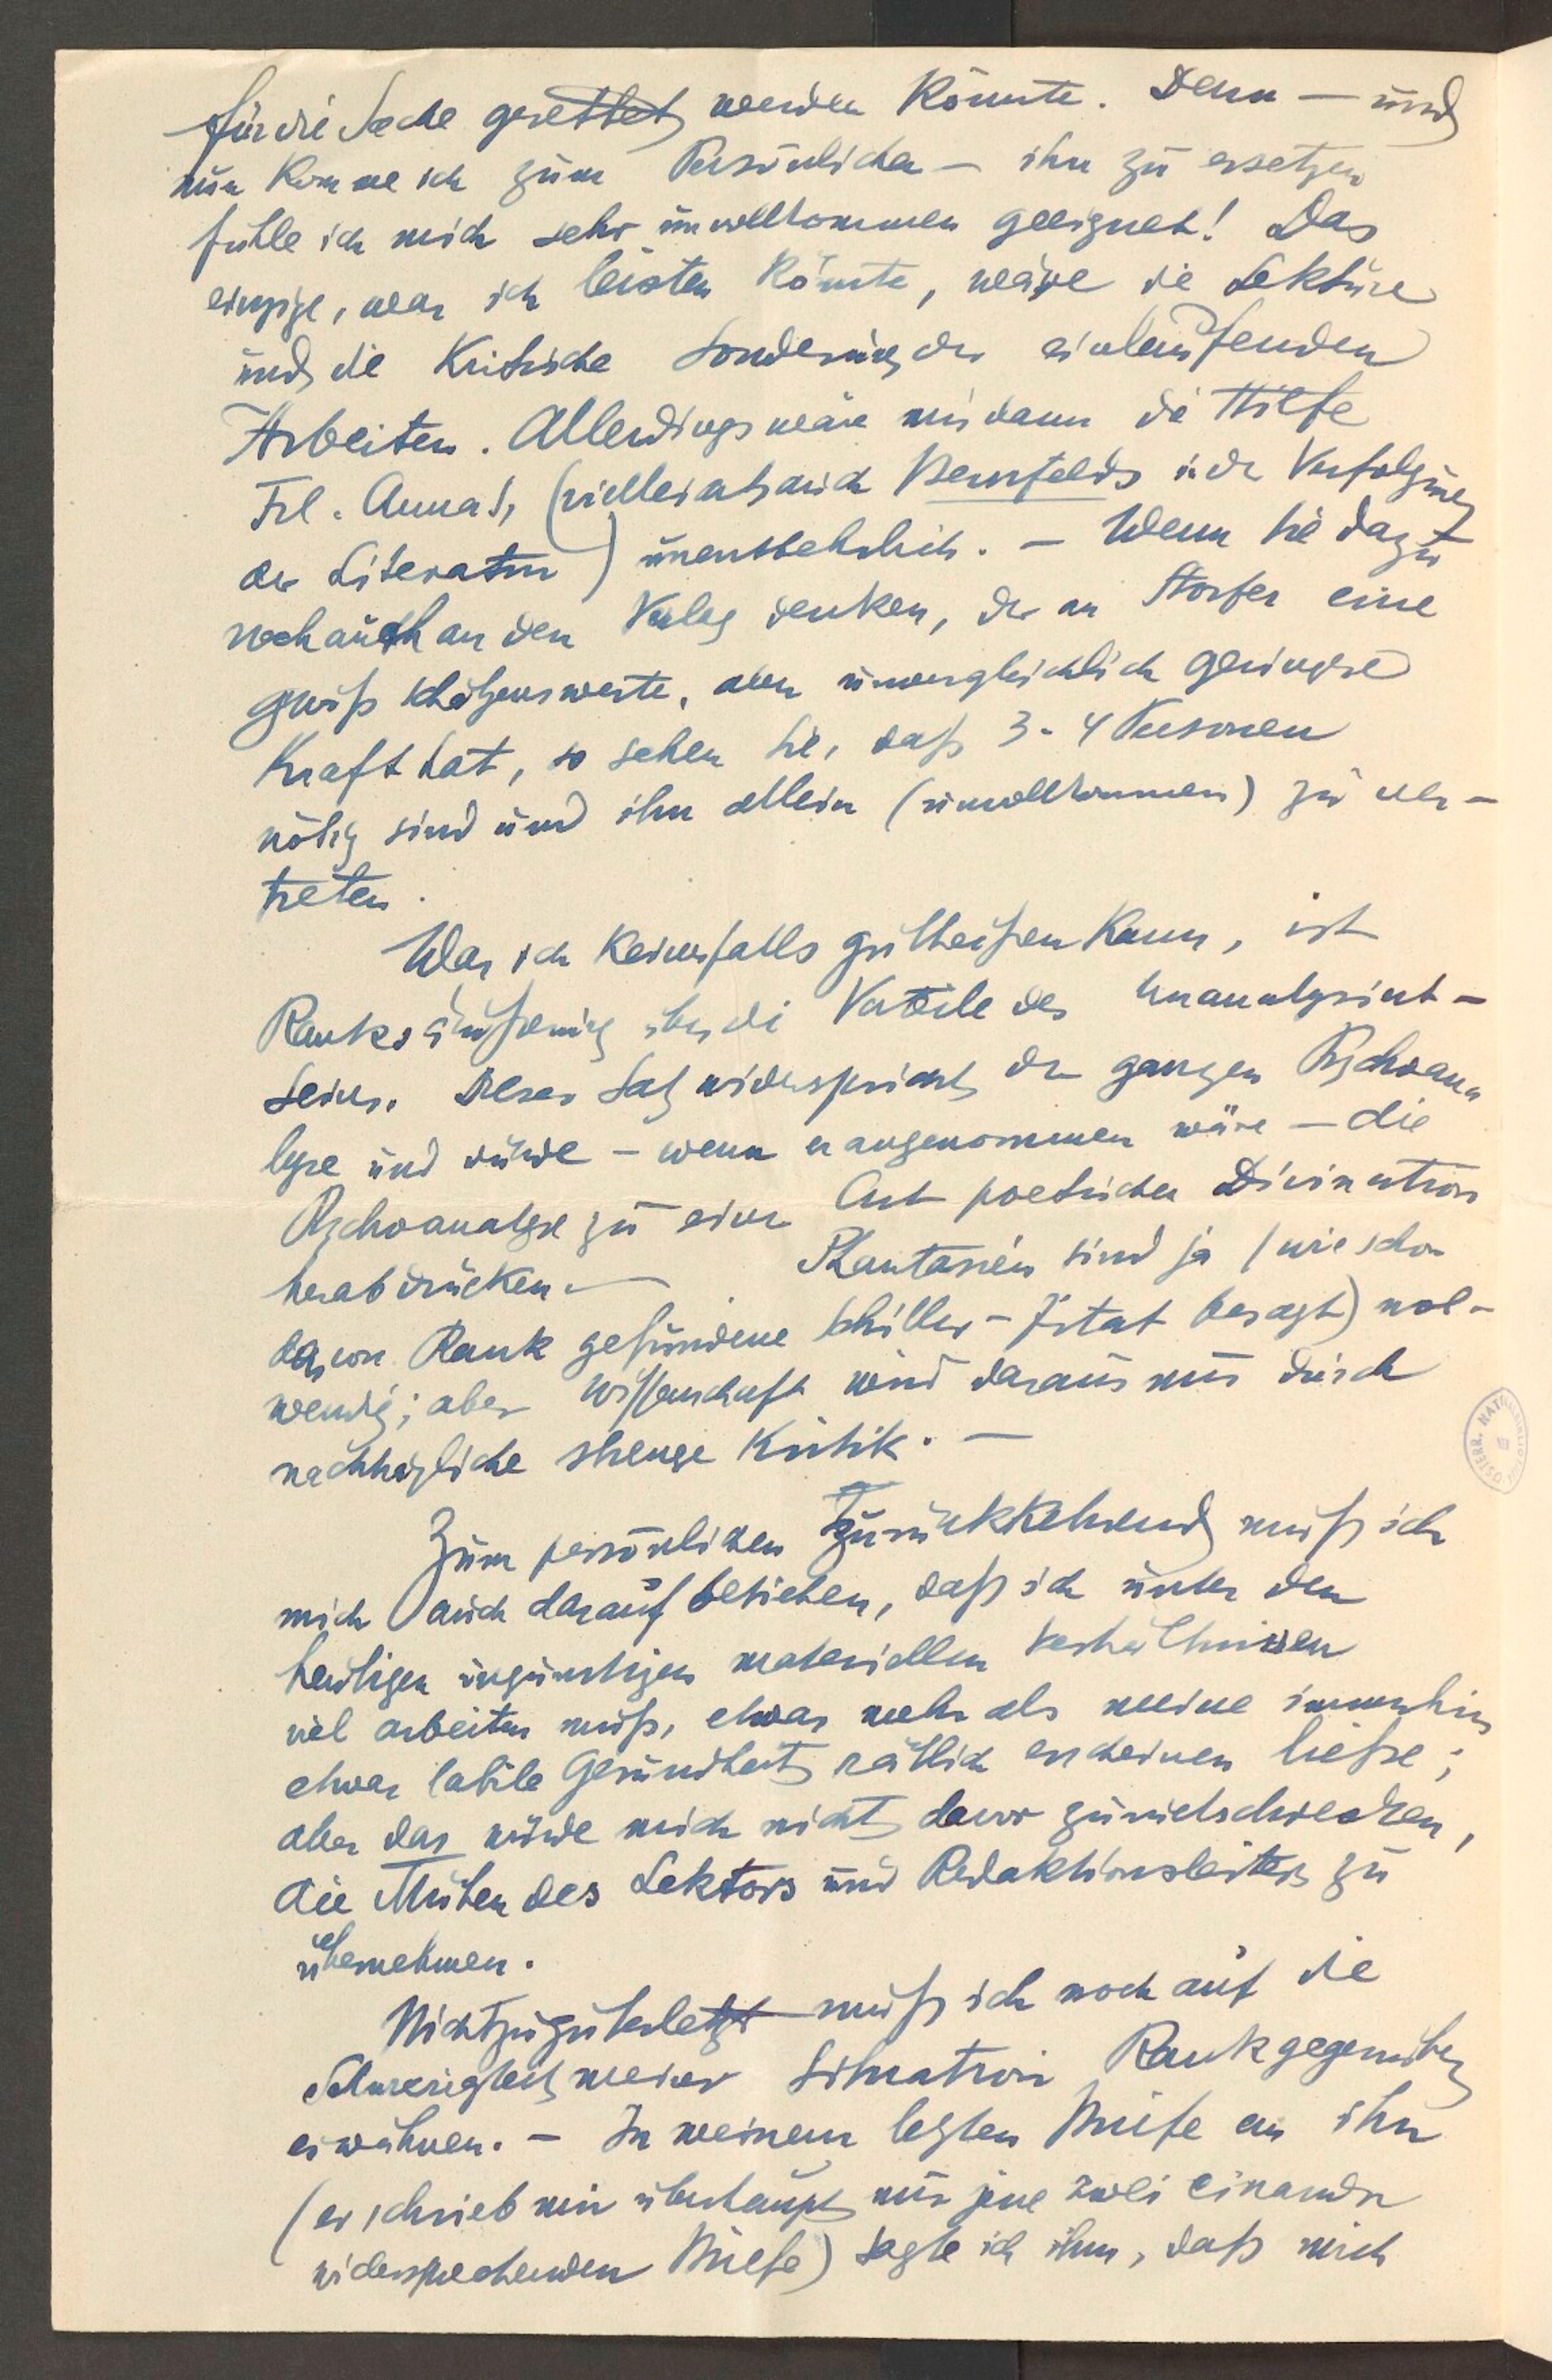 für die Sache gerettet werden könnte. Denn — und
nun komme ich zum Persönlichen — ihn zu ersetzen
fühle ich mich sehr unvollkommen geeignet! Das
einzige, was ich leisten könnte, wäre die Lektüre
und die kritische Sonderung der einlaufenden
Arbeiten. Allerdings wäre mir dann die Hilfe
Frl. Annas, (vielleicht auch Bernfelds in der Verfolgung
der Literatur) unentbehrlich. — Wenn Sie dazu
noch auch an den Verlag denken, der an Storfer eine
gewiß schätzenswerte, aber unvergleichlich geringere
Kraft hat, so sehen Sie, daß 3-4 Personen
nötig sind und ihn allein (unvollkommen) zu ver-
treten.
Was ich keinesfalls gutheißen kann, ist
Ranks Äußerung über die Vorteile des Unanalysiert-
Seins. Dieser Satz widerspricht der ganzen Psychoana
lyse und würde – wenn er angenommen wäre – die
Psychoanalyse zu einer Art poetischer Divination
herabdrücken. — Phantasieen sind ja (wie schon
das von Rank gefundene Schiller-Zitat besagt) not-
wendig; aber Wissenschaft wird daraus nur durch
nachträgliche strenge Kritik. —
Zum persönlichen zurückkehrend muß ich
mich auch darauf beziehen, daß ich unter den
heutigen ungünstigen materiellen Verhältnissen
viel arbeiten muß, etwas mehr als meine immerhin
etwas labile Gesundheit rätlich erscheinen ließe;
aber das würde mich nicht davor zurückschrecken,
die Mühen des Lektors und Redaktionsleiters zu
übernehmen.
Nicht zu guterletzt muß ich noch auf die
Schwierigkeit meiner Situation Rank gegenüber
erwähnen. – In meinem letzten Briefe an ihn
(er schrieb mir überhaupt nur jene zwei einander
widersprechenden Briefe) sagte ich ihm, daß mich